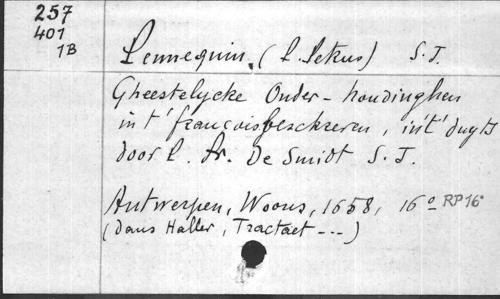 257
401
1B
Pennequin, (P. Petrus) S. J.
Gheestelycke Onder-houdinghen
in t' françois beschreven, in't' duyts
door P. Fr. De Smidt S. J.
Antwerpen, Woons, 1658, 16° RP 16°
(Dans Haller, Tractaet ---)